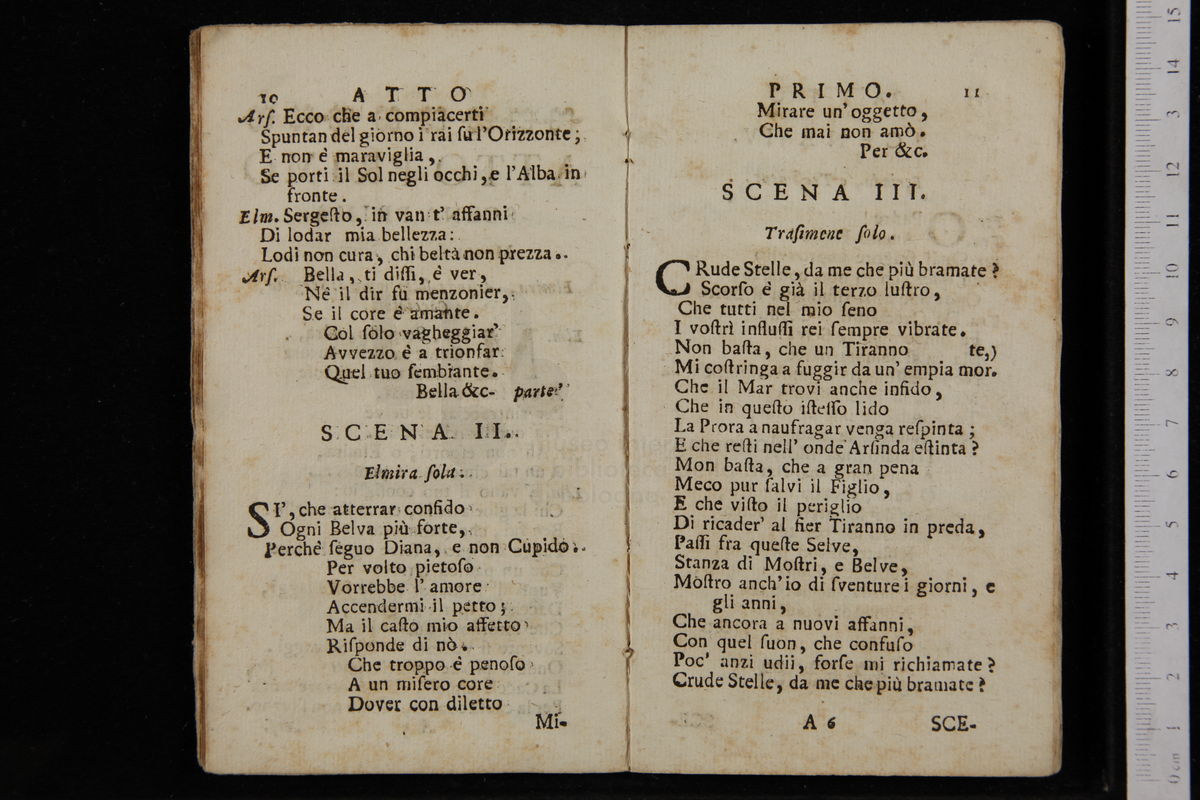 10 ATTO
Arſ. Ecco che a compiacerti
Spuntan del giorno i rai ſu l'Orizzonte;
E non è maraviglia,
Se porti il Sol negli occhi, e l'Alba in
fronte.
Elm. Sergeſto, in van t' affanni
Di lodar mia bellezza:
Lodi non cura, chi beltà non prezza.
Arſ. Bella, ti diſſi, è ver,
Nè il dir fù menzonier,
Se il core è amante.
Col ſolo vagheggiar
Avvezzo è a trionfar
Quel tuo ſembiante.
Bella &c- parte.
SCENA II.
Elmira ſola.
SI', che atterrar confido
Ogni Belva più forte,
Perchè ſeguo Diana, e non Cupido.
Per volto pietoſo
Vorrebbe l' amore
Accendermi il petto;
Ma il caſto mio affetto
Riſponde di nò.
Che troppo è penoſo
A un miſero core
Dover con diletto
Mi-
PRIMO. 11
Mirare un' oggetto,
Che mai non amò.
Per &c.
SCENA III.
Traſimene ſolo.
CRude Stelle, da me che più bramate?
Scorſo è già il terzo luſtro,
Che tutti nel mio ſeno
I voſtri influſſi rei ſempre vibrate.
Non baſta, che un Tiranno te,)
Mi coſtringa a fuggir da un' empia mor.
Che il Mar trovi anche infido,
Che in queſto iſteſſo lido
La Prora a naufragar venga reſpinta;
E che reſti nell' onde Arſinda eſtinta?
Mon baſta, che a gran pena
Meco pur ſalvi il Figlio,
E che viſto il periglio
Di ricader' al fier Tiranno in preda,
Paſſi fra queſte Selve,
Stanza di Moſtri, e Belve,
Moſtro anch'io di ſventure i giorni, e
gli anni,
Che ancora a nuovi affanni,
Con quel ſuon, che confuſo
Poc' anzi udii, forſe mi richiamate?
Crude Stelle, da me che più bramate?
A 6 SCE-